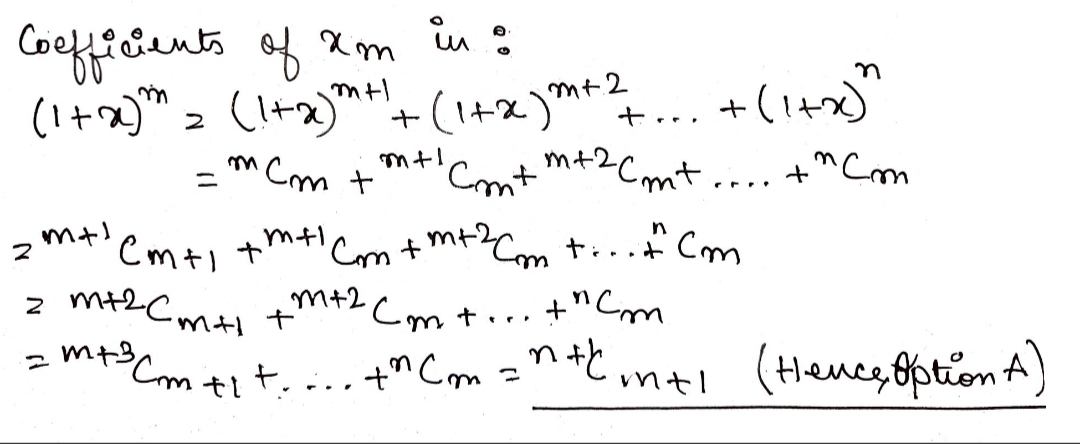 Coefficients of xm in :
(1+x)^m = (1+x)^m+1 + (1+x)^m+2 + ... + (1+x)^n
= ^mCm + ^m+1Cm + ^m+2Cm + .... + ^nCm
= ^m+1Cm+1 + ^m+1Cm + ^m+2Cm + ... + ^nCm
= ^m+2Cm+1 + ^m+2Cm + ... + ^nCm
= ^m+3Cm+1 + .... + ^nCm = ^n+1Cm+1 (Hence, Option A)